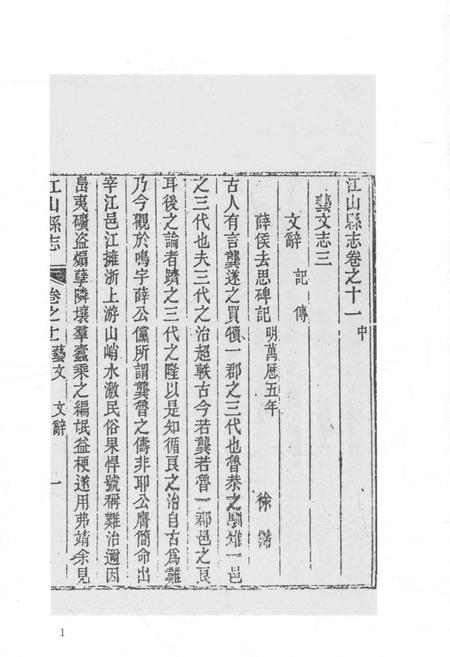 江山縣志卷之十一中
藝文志三
文辭 記 傳
薛侯去思碑記 明萬厯五年 徐
古人有言龔遂之買犢一郡之三代也魯恭之馴雉一邑
之三代也夫三代之治超軼古今若龔若魯一郡邑之良
耳後之論者躋之三代之隆以是知循良之治自古爲難
乃今觀於鳴宇薛公儻所謂龔魯之儔非耶公膺簡命出
宰江邑江擁浙上游山峭水激民俗果悍號稱難治邇因
島夷礦盜煽孽隣壤羣蠹乘之編氓益梗遂用弗靖余見
江山縣志 卷之十一藝文 文辭 一
1